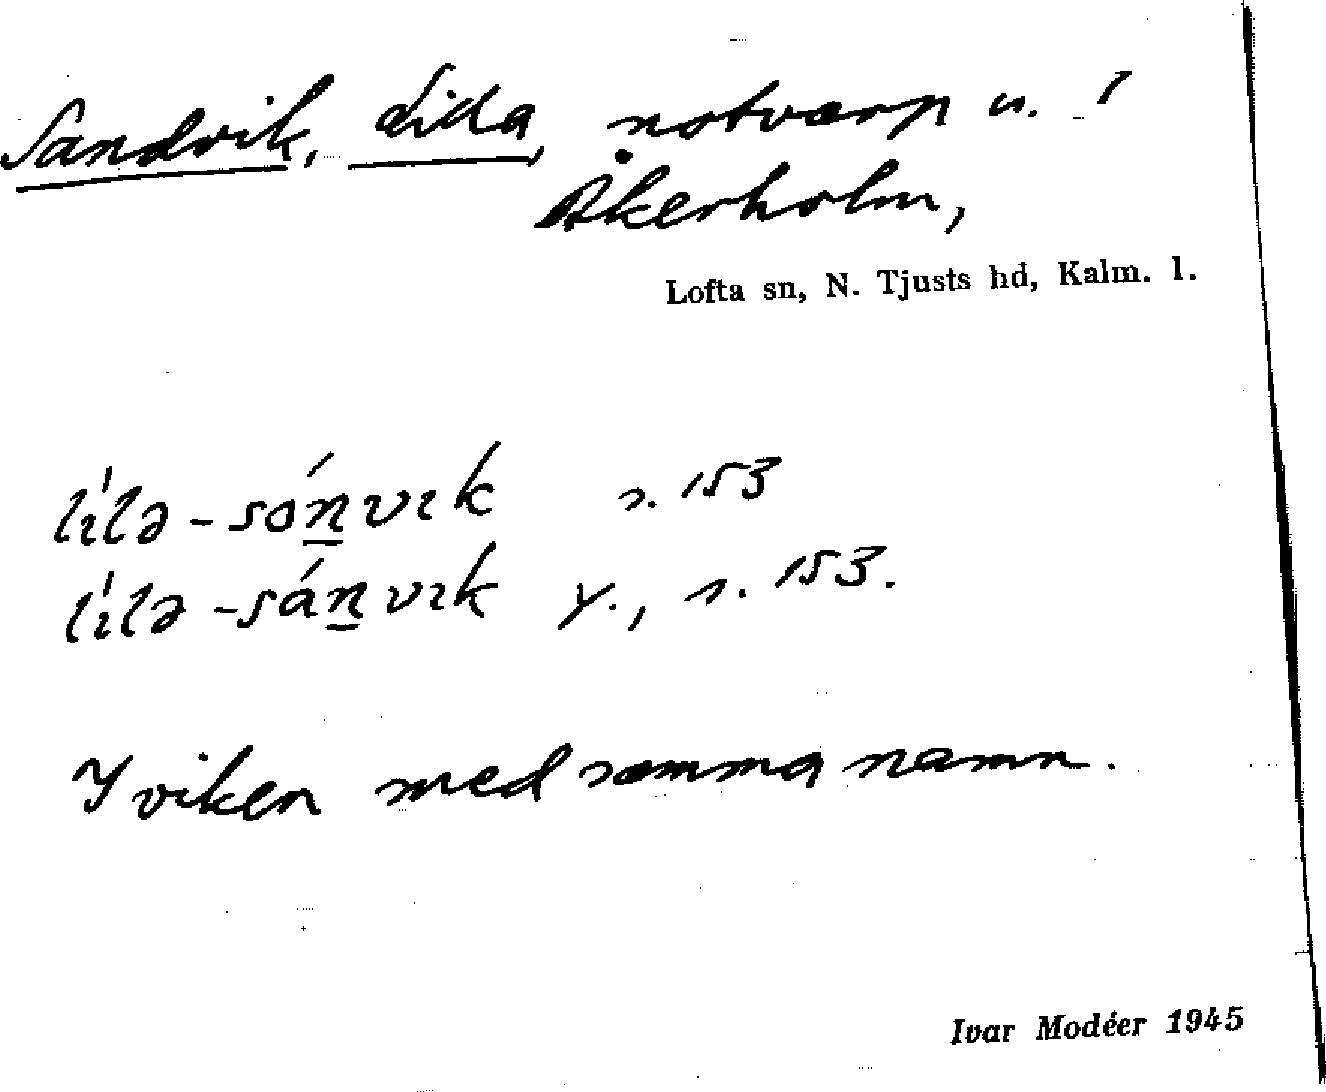 Sandvik, Lilla, notvarp u. 1
Åkerholm,
Lofta sn, N. Tjusts hd, Kalm. l.
lı'lə-sóṉvık s. 153
lı'lə-sáṉvık y., s. 153.
I viken med samma namn.
Ivar Modéer 1945